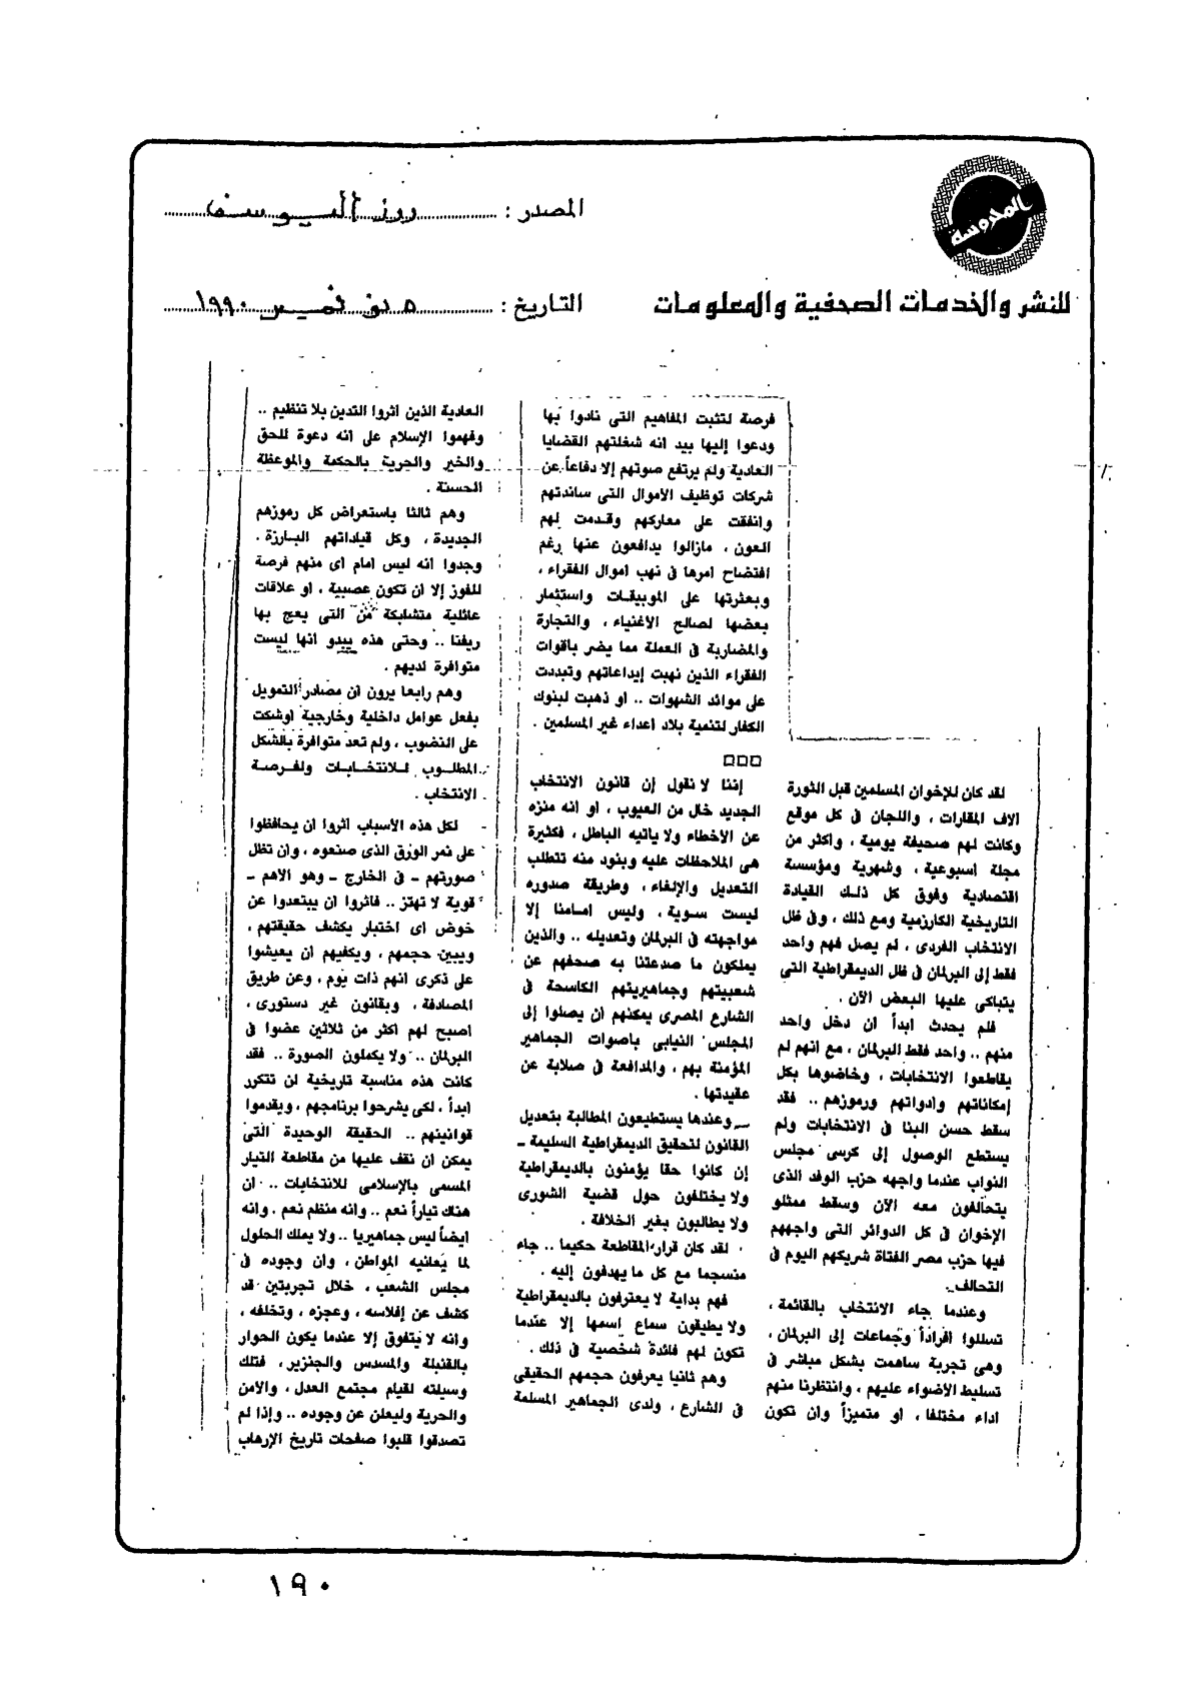 المحروسة
المصدر : روز اليوسف
للنشر والخدمات الصحفية والمعلومات
التاريخ : ٥ نوفمبر ١٩٩٠
لقد كان للإخوان المسلمين قبل الثورة
الاف المقارات ، واللجان فى كل موقع
وكانت لهم صحيفة يومية ، واكثر من
مجلة أسبوعية ، وشهرية ومؤسسة
اقتصادية وفوق كل ذلك القيادة
التاريخية الكارزمية ومع ذلك ، وفى ظل
الانتخاب الفردى ، لم يصل فهم واحد
فقط إلى البرلمان فى ظل الديمقراطية التى
يتباكى عليها البعض الآن .
فلم يحدث ابداً ان دخل واحد
منهم .. واحد فقط البرلمان ، مع انهم لم
يقاطعوا الانتخابات ، وخاضوها بكل
إمكاناتهم وادواتهم ورموزهم .. فقد
سقط حسن البنا فى الانتخابات ولم
يستطع الوصول إلى كرسى مجلس
النواب عندما واجهه حزب الوفد الذى
يتحالفون معه الآن وسقط ممثلو
الإخوان فى كل الدوائر التى واجههم
فيها حزب مصر الفتاة شريكهم اليوم فى
التحالف .
وعندما جاء الانتخاب بالقائمة ،
تسللوا افراداً وجماعات إلى البرلمان ،
وهى تجربة ساهمت بشكل مباشر فى
تسليط الأضواء عليهم ، وانتظرنا منهم
اداء مختلفا ، او متميزاً وان تكون
فرصة لتثبت المفاهيم التى نادوا بها
ودعوا إليها بيد انه شغلتهم القضايا
العادية ولم يرتفع صوتهم إلا دفاعاً عن
شركات توظيف الأموال التى ساندتهم
وانفقت على معاركهم وقدمت لهم
العون ، مازالوا يدافعون عنها رغم
افتضاح امرها فى نهب اموال الفقراء ،
وبعثرتها على الموبيقات واستثمار
بعضها لصالح الأغنياء ، والتجارة
والمضاربة فى العملة مما يضر باقوات
الفقراء الذين نهبت إيداعاتهم وتبددت
على موائد الشهوات .. او ذهبت لبنوك
الكفار لتنمية بلاد اعداء غير المسلمين .
□□□
إننا لا نقول إن قانون الانتخاب
الجديد خال من العيوب ، او انه منزه
عن الأخطاء ولا ياتيه الباطل ، فكثيرة
هى الملاحظات عليه وبنود منه تتطلب
التعديل والإلغاء ، وطريقة صدوره
ليست سوية ، وليس امامنا إلا
مواجهته فى البرلمان وتعديله .. والذين
يملكون ما صدعتنا به صحفهم عن
شعبيتهم وجماهيريتهم الكاسحة فى
الشارع المصرى يمكنهم ان يصلوا إلى
المجلس النيابى باصوات الجماهير
المؤمنة بهم ، والمدافعة فى صلابة عن
عقيدتها .
وعندها يستطيعون المطالبة بتعديل
القانون لتحقيق الديمقراطية السليمة -
إن كانوا حقا يؤمنون بالديمقراطية
ولا يختلفون حول قضية الشورى
ولا يطالبون بغير الخلافة .
لقد كان قرار المقاطعة حكيما .. جاء
منسجما مع كل ما يهدفون إليه .
فهم بداية لا يعترفون بالديمقراطية
ولا يطيقون سماع اسمها إلا عندما
تكون لهم فائدة شخصية فى ذلك .
وهم ثانيا يعرفون حجمهم الحقيقى
فى الشارع ، ولدى الجماهير المسلمة
العادية الذين اثروا التدين بلا تنظيم ..
وفهموا الإسلام على انه دعوة للحق
والخير والحرية بالحكمة والموعظة
الحسنة .
وهم ثالثا باستعراض كل رموزهم
الجديدة ، وكل قياداتهم البارزة .
وجدوا انه ليس امام اى منهم فرصة
للفوز إلا ان تكون عصبية ، او علاقات
عائلية متشابكة من التى يعج بها
ريفنا .. وحتى هذه يبدو انها ليست
متوافرة لديهم .
وهم رابعا يرون ان مصادر التمويل
بفعل عوامل داخلية وخارجية اوشكت
على النضوب ، ولم تعد متوافرة بالشكل
المطلوب للانتخابات ولفرصة
الانتخاب .
لكل هذه الأسباب اثروا ان يحافظوا
على نمر الورق الذى صنعوه ، وان تظل
صورتهم - فى الخارج - وهو الأهم -
قوية لا تهتز .. فاثروا ان يبتعدوا عن
خوض اى اختبار يكشف حقيقتهم ،
ويبين حجمهم ، ويكفيهم ان يعيشوا
على ذكرى انهم ذات يوم ، وعن طريق
المصادفة ، وبقانون غير دستورى ،
اصبح لهم اكثر من ثلاثين عضوا فى
البرلمان .. ولا يكملون الصورة .. فقد
كانت هذه مناسبة تاريخية لن تتكرر
ابداً ، لكى يشرحوا برنامجهم ، ويقدموا
قوانينهم .. الحقيقة الوحيدة التى
يمكن ان نقف عليها من مقاطعة التيار
المسمى بالإسلامى للانتخابات .. ان
هناك تياراً نعم .. وانه منظم نعم . وانه
ايضاً ليس جماهيريا .. ولا يملك الحلول
لما يعانيه المواطن ، وان وجوده فى
مجلس الشعب ، خلال تجربتين قد
كشف عن إفلاسه ، وعجزه ، وتخلفه ،
وانه لا يتفوق إلا عندما يكون الحوار
بالقنبلة والمسدس والجنزير ، فتلك
وسيلته لقيام مجتمع العدل ، والأمن
والحرية وليعلن عن وجوده .. وإذا لم
تصدقوا قلبوا صفحات تاريخ الإرهاب
١٩٠